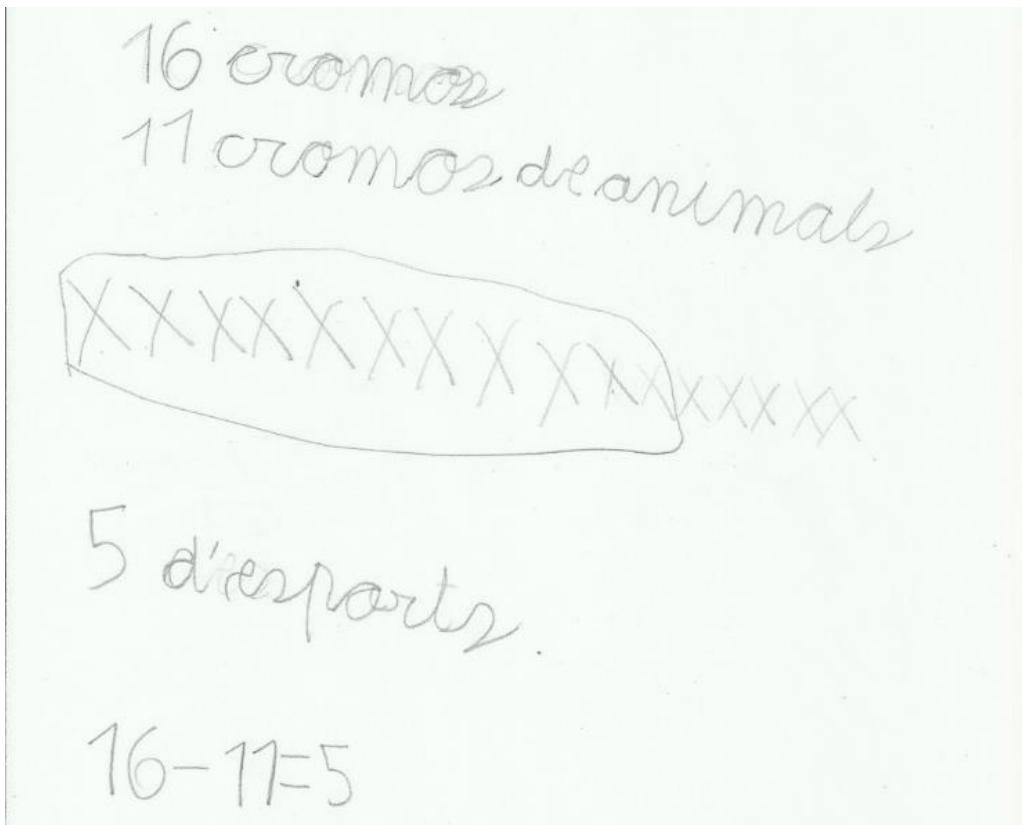 16 cromos
11 cromos de animals
XXXXXXXXXXXXXXXX
5 d'esports.
16-11=5